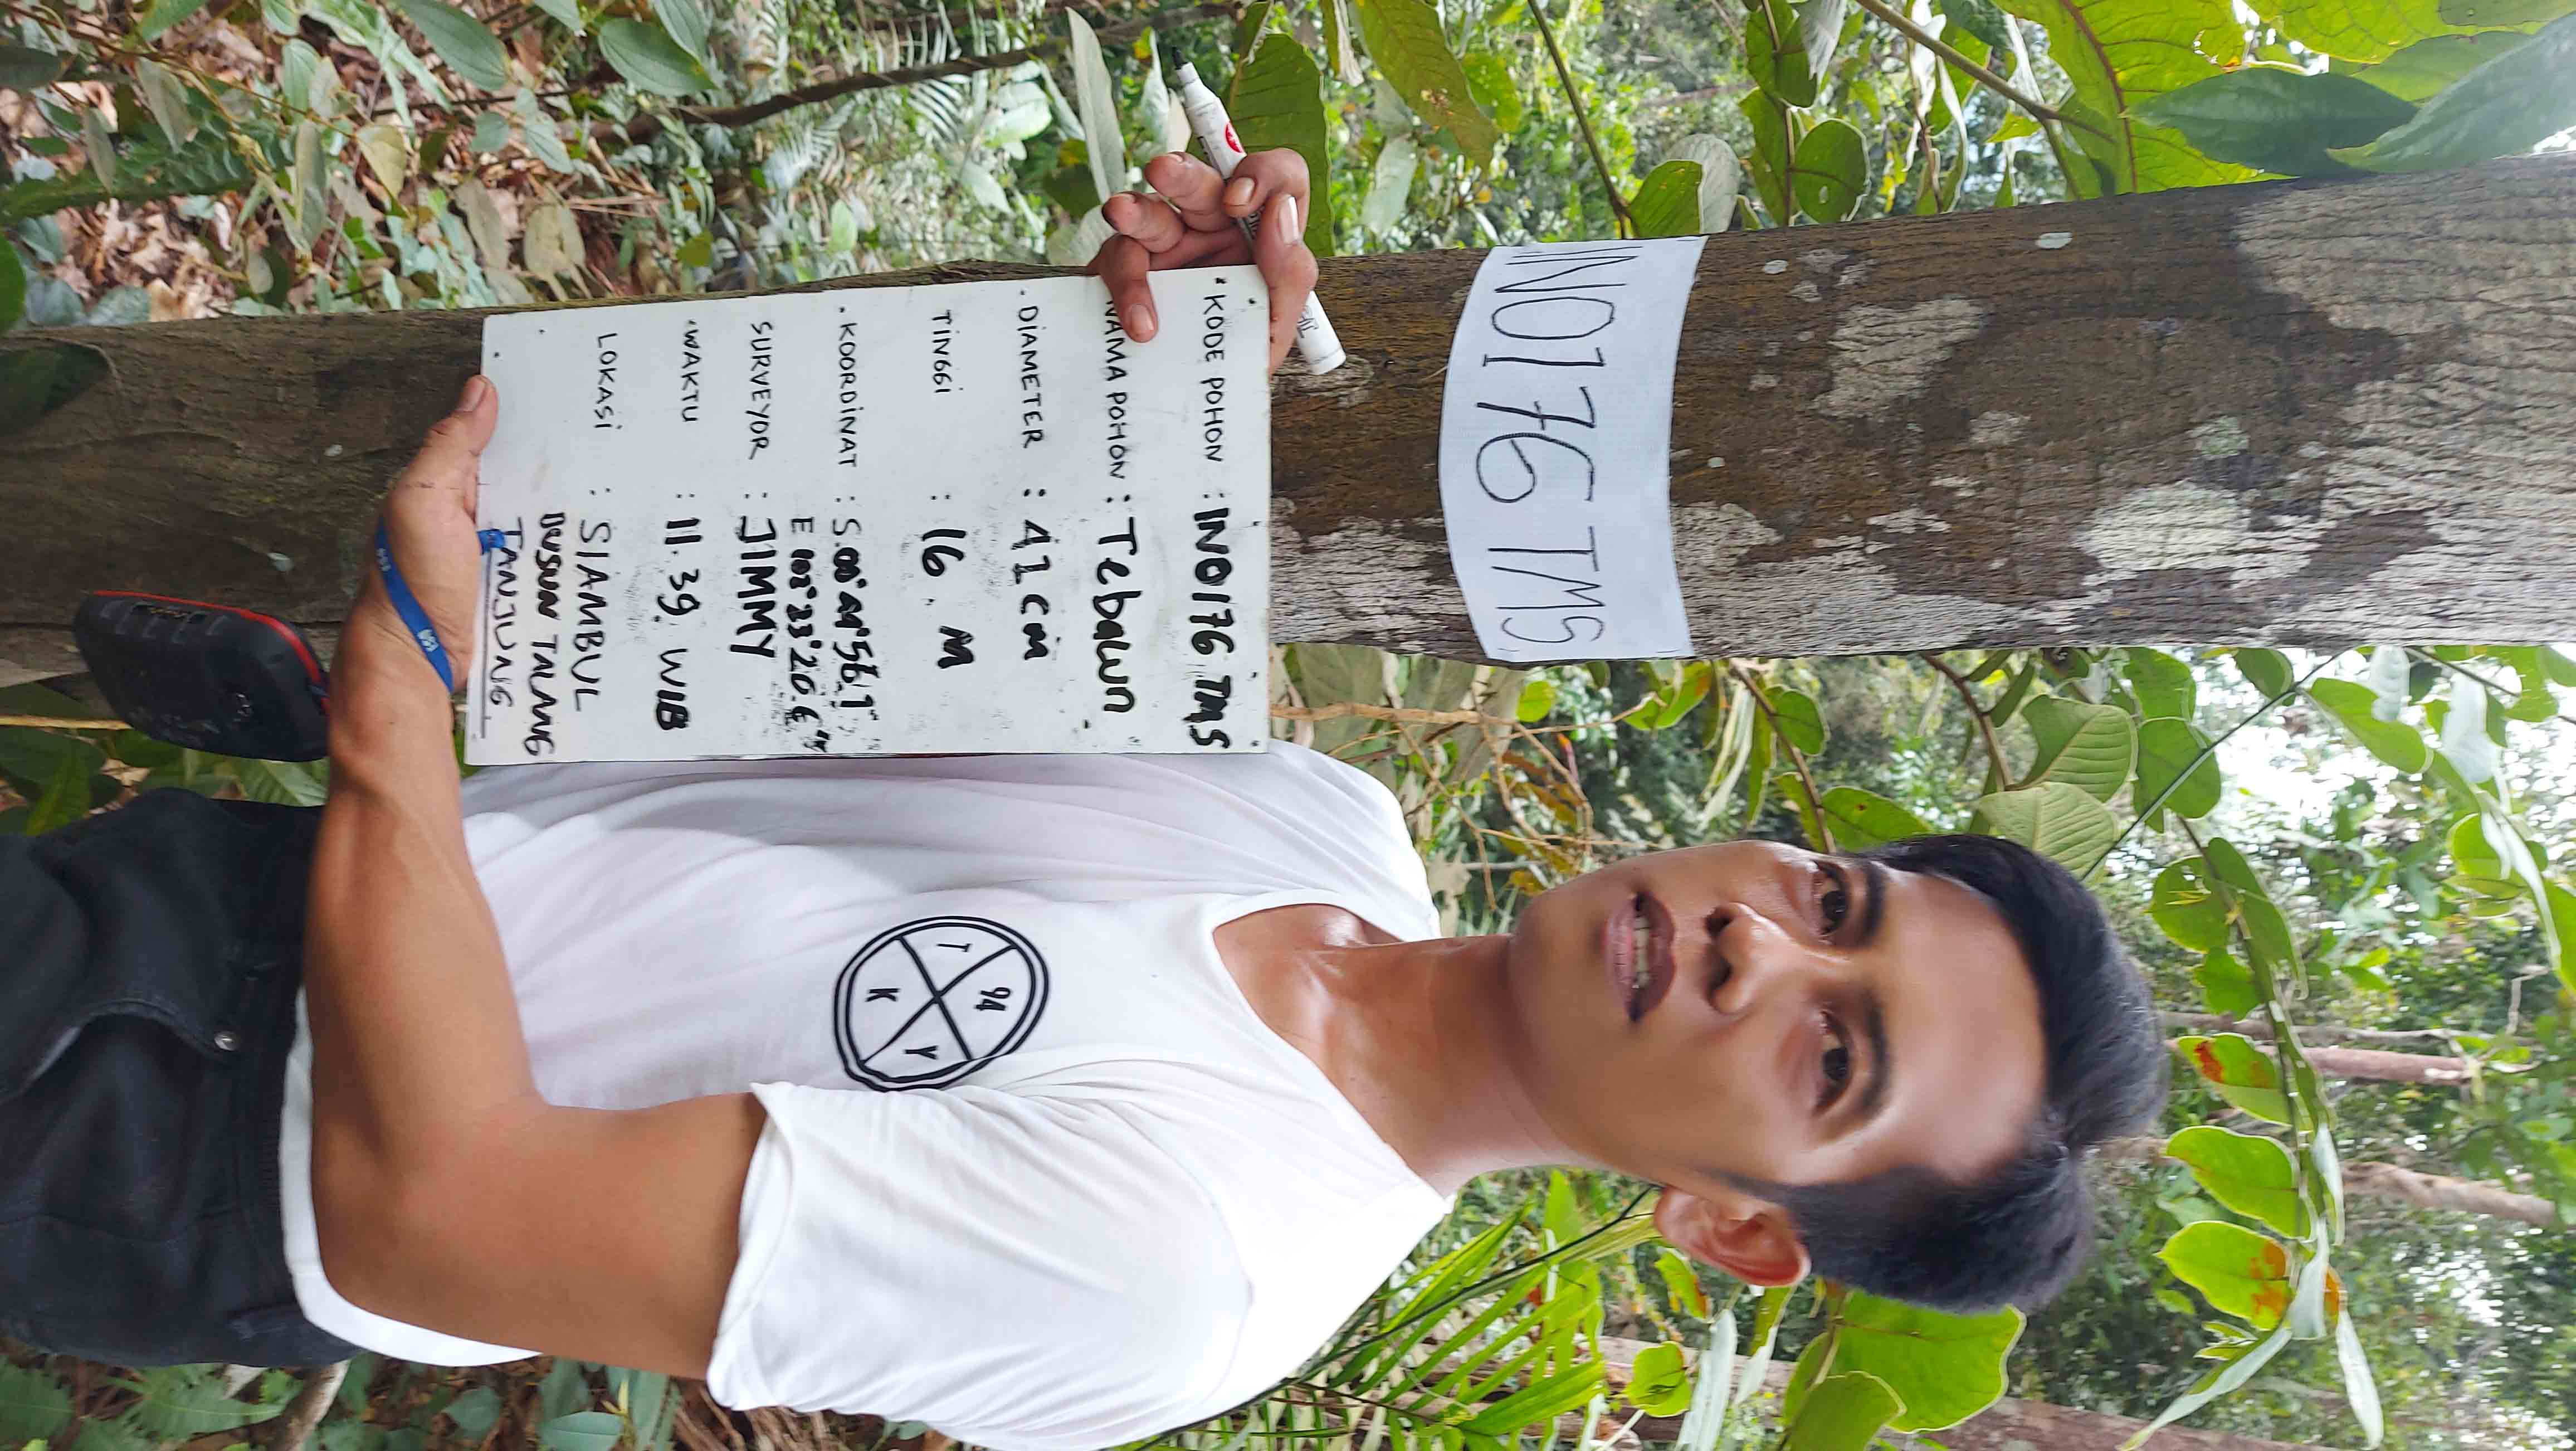 IN0176 TMS
KODE POHON : IN0176 TMS
NAMA POHON : Tebawn
DIAMETER : 41 CM
TINGGI : 16 M
KOORDINAT : S.00°
E 102°23'20.6"
SURVEYOR : JIMMY
WAKTU : 11.39. WIB
LOKASI : SIAMBUL
DUSUN TALANG
TANJUNG
94
T
Y
K